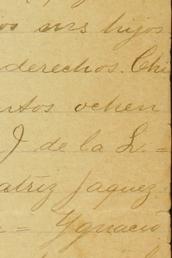 os sus hijos
derechos. Chi
ntos ochen
J de la L =
atriz Jaquez.
= Ygnacio